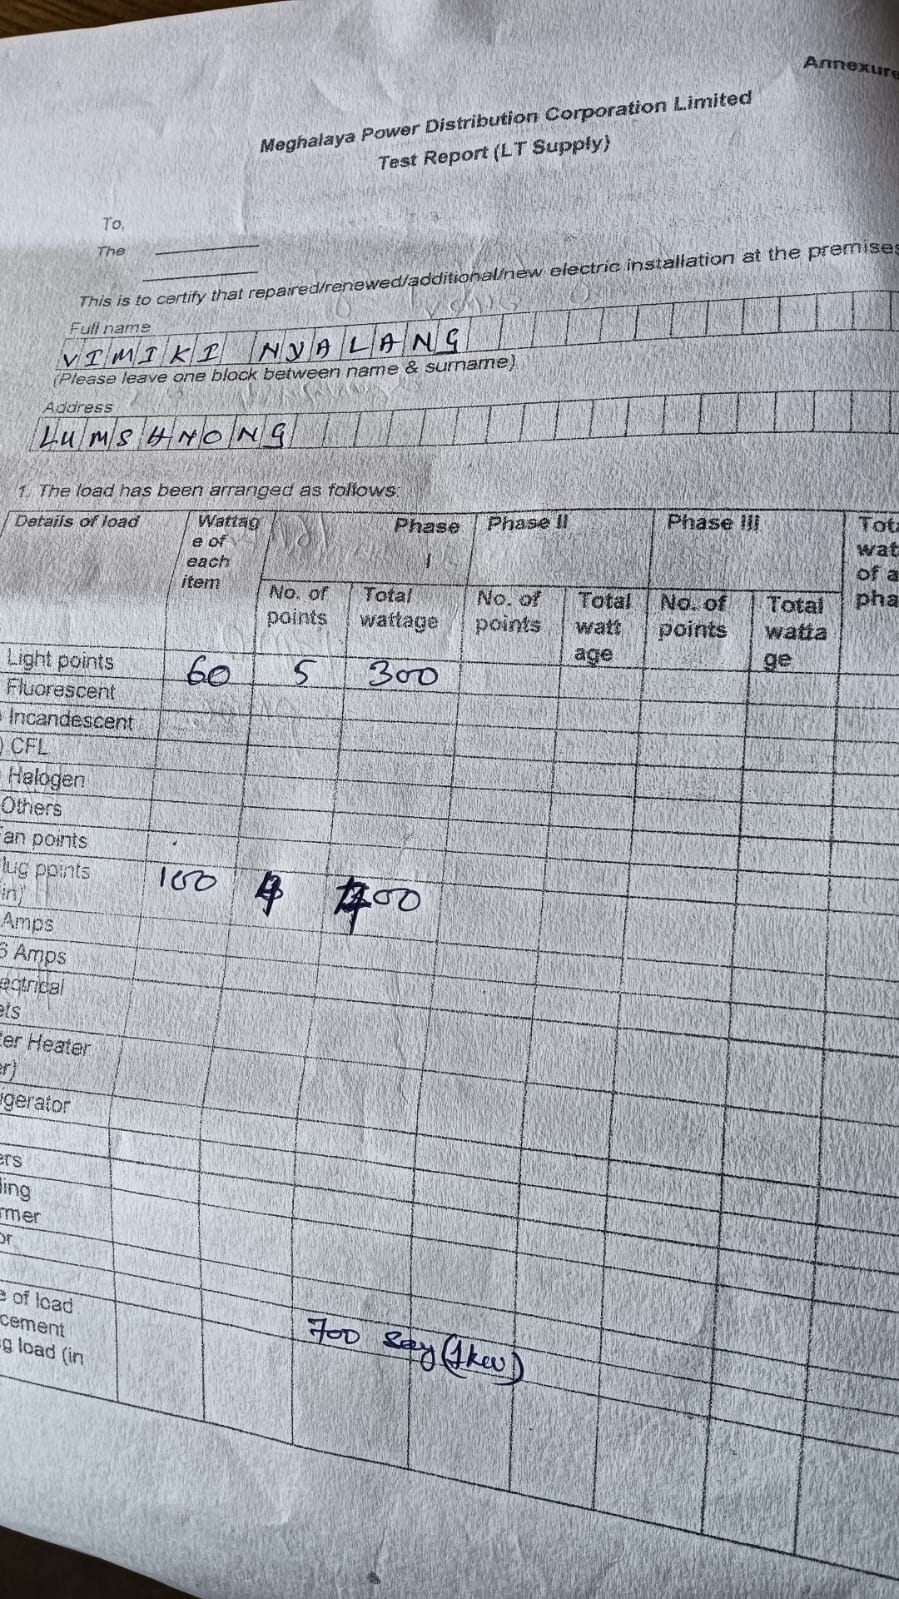 Annexure
Meghalaya Power Distribution Corporation Limited
Test Report (LT Supply)
To,
The
This is to certify that repaired/renewed/additional/new electric installation at the premises
Full name
VIMIKI NYALANG
(Please leave one block between name & surname)
Address
LUMSHNONG
1. The load has been arranged as follows:
Details of load Wattag e of each item Phase I Phase II Phase III Tota wat of a pha
No. of points Total wattage No. of points Total watt age No. of points Total watta ge
Light points 60 5 300
Fluorescent
Incandescent
) CFL
Halogen
Others
an points
lug points 100 4 400
in)
Amps
6 Amps
ectrical
ets
ter Heater
er)
igerator
ers
ling
rmer
or
e of load
cement 700 say (1kw)
g load (in